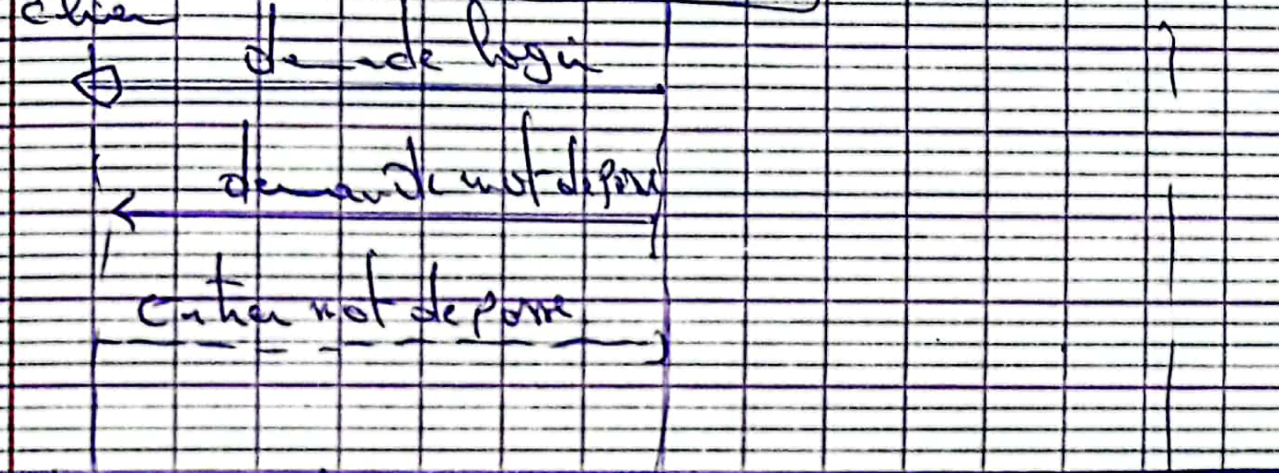 client
demande login
demande mot de passe
entrer mot de passe